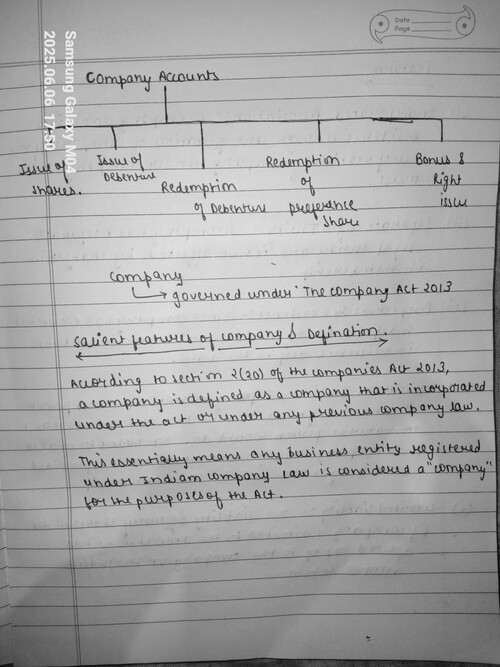 Date
Page
Samsung Galaxy M04
2025.06.06 17:50
Company Accounts
Issue of
shares.
Issue of
Debenture
Redemption
of Debenture
Redemption
of
preference
share
Bonus &
Right
issue
company
governed under The company Act 2013
salient features of company & Defination.
According to section 2(20) of the companies Act 2013,
a company is defined as a company that is incorporated
under the act or under any previous company law.
This essentially means any business entity registered
under Indian company law is considered a "company"
for the purposes of the Act.